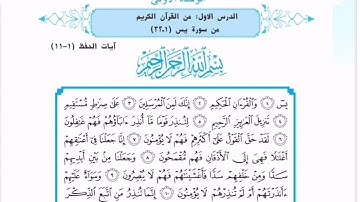 الدرس الاول: من القرآن الكريم
من سورة يس (١-٢٢)
آيات الحفظ (١-١١)
بِسْمِ اللَّهِ الرَّحْمَٰنِ الرَّحِيمِ
يسٓ ۝١ وَالْقُرْءَانِ الْحَكِيمِ ۝٢ إِنَّكَ لَمِنَ الْمُرْسَلِينَ ۝٣ عَلَىٰ صِرَٰطٍ مُّسْتَقِيمٍ
۝٤ تَنزِيلَ الْعَزِيزِ الرَّحِيمِ ۝٥ لِتُنذِرَ قَوْمًا مَّا أُنذِرَ ءَابَاؤُهُمْ فَهُمْ غَٰفِلُونَ
۝٦ لَقَدْ حَقَّ الْقَوْلُ عَلَىٰ أَكْثَرِهِمْ فَهُمْ لَا يُؤْمِنُونَ ۝٧ إِنَّا جَعَلْنَا فِي أَعْنَٰقِهِمْ
أَغْلَٰلًا فَهِيَ إِلَى الْأَذْقَانِ فَهُم مُّقْمَحُونَ ۝٨ وَجَعَلْنَا مِن بَيْنِ أَيْدِيهِمْ
سَدًّا وَمِنْ خَلْفِهِمْ سَدًّا فَأَغْشَيْنَٰهُمْ فَهُمْ لَا يُبْصِرُونَ ۝٩ وَسَوَاءٌ عَلَيْهِمْ
ءَأَنذَرْتَهُمْ أَمْ لَمْ تُنذِرْهُمْ لَا يُؤْمِنُونَ ۝١٠ إِنَّمَا تُنذِرُ مَنِ اتَّبَعَ الذِّكْرَ